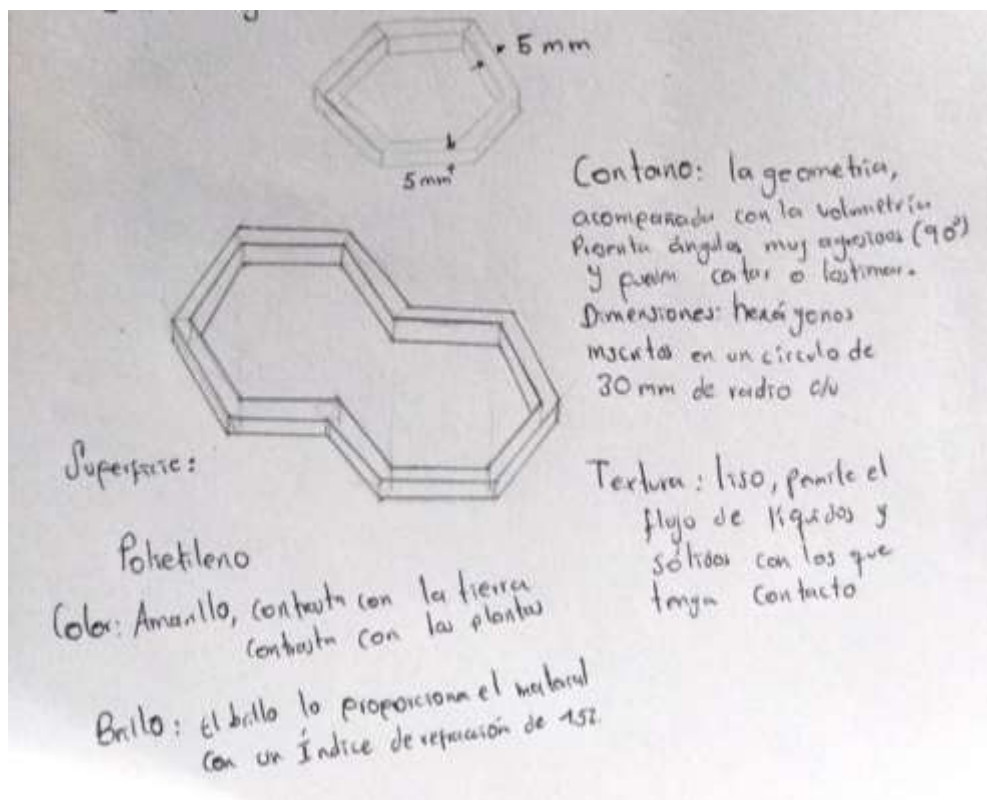 5 mm
5 mm
Contorno: la geometria,
acompañada con la volumetría
Presenta ángulos muy agresivos (90°)
y pueden cortar o lastimar.
Dimensiones: hexágonos
inscritos en un círculo de
30 mm de radio c/u
Superficie:
Textura: liso, permite el
flujo de líquidos y
sólidos con los que
tenga contacto
Polietileno
Color: Amarillo, contrasta con la tierra
contrasta con las plantas
Brillo: El brillo lo proporciona el material
con un Índice de refracción de